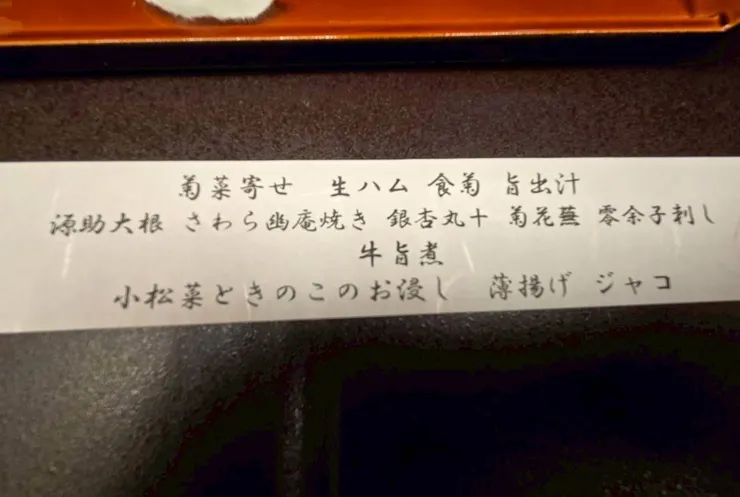 菊菜寄せ 生ハム 食菊 旨出汁
源助大根 さわら幽庵焼き 銀杏丸十 菊花蕪 零余子刺し
牛旨煮
小松菜ときのこのお浸し 薄揚げ ジャコ